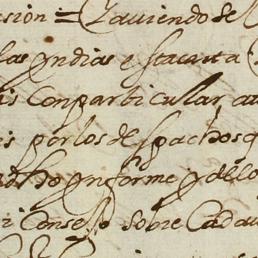 esion = Y auiendose
las Yndias esta carta
is Con particular au
is por los despachos q
dho ynforme y de lo
i Consejo sobre Cada